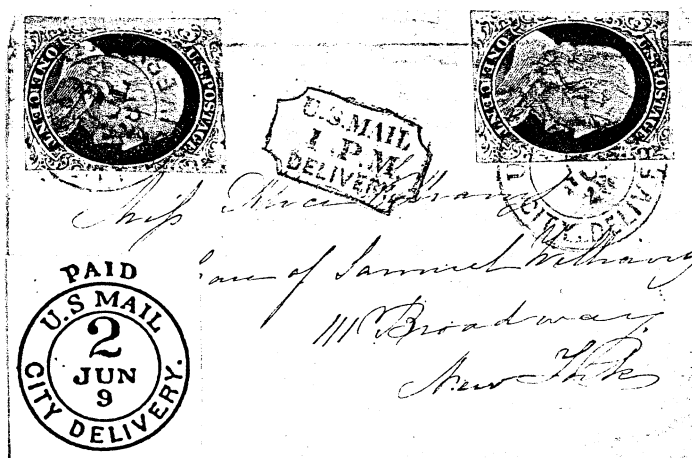 U.S. POSTAGE
ONE CENT
U.S. POSTAGE
ONE CENT
U.S. MAIL
1 P.M
DELIVERY
CITY. DELIVA
Miss
Care of Samuel Williams
111 Broadway
New York
PAID
U.S MAIL
2
JUN
9
CITY DELIVERY.